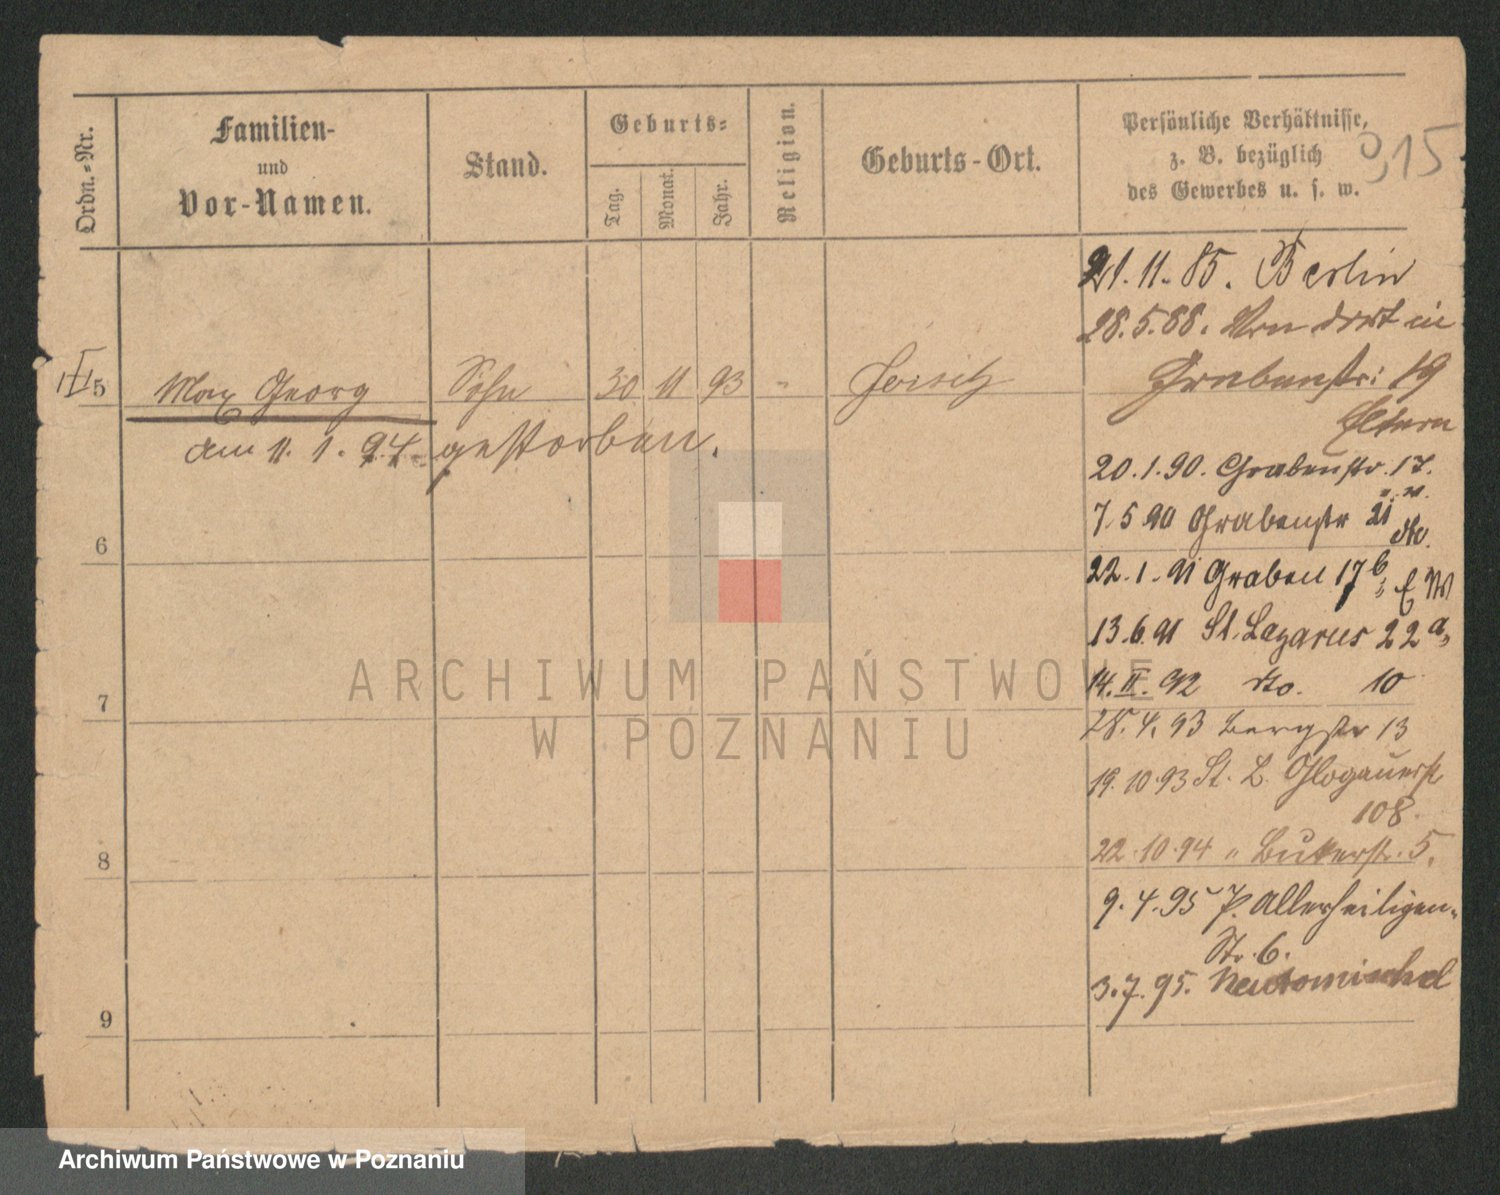 Ordn.-Nr.
Familien-
und
Vor-Namen.
Stand.
Geburts-
Tag.
Monat.
Jahr.
Religion.
Geburts-Ort.
Persönliche Verhältnisse,
z. B. bezüglich
des Gewerbes u. s. w.
915
21.11.85. Berlin
28.5.88. Von dort in
Grabenstr: 19
Eltern
5 Max Georg Sohn 30 11 93 " Jersitz
am 11. 1. 94 gestorben.
20.1.90. Grabenstr. 17.
7.5.90 Grabenstr 21
6
22.1.91 Graben 17b
13.6.91 St. Lazarus 22a
14.II.92 do. 10
7
28.4.93 Bergstr 13
19.10.93 St. L. Glogauerst
108.
8
22.10.94 " Bukerstr. 5.
9.4.95 P. Allerheiligen-
Str. 6.
3.7.95. Neutomischel
9
ARCHIWUM PAŃSTWOWE
W POZNANIU
Archiwum Państwowe w Poznaniu